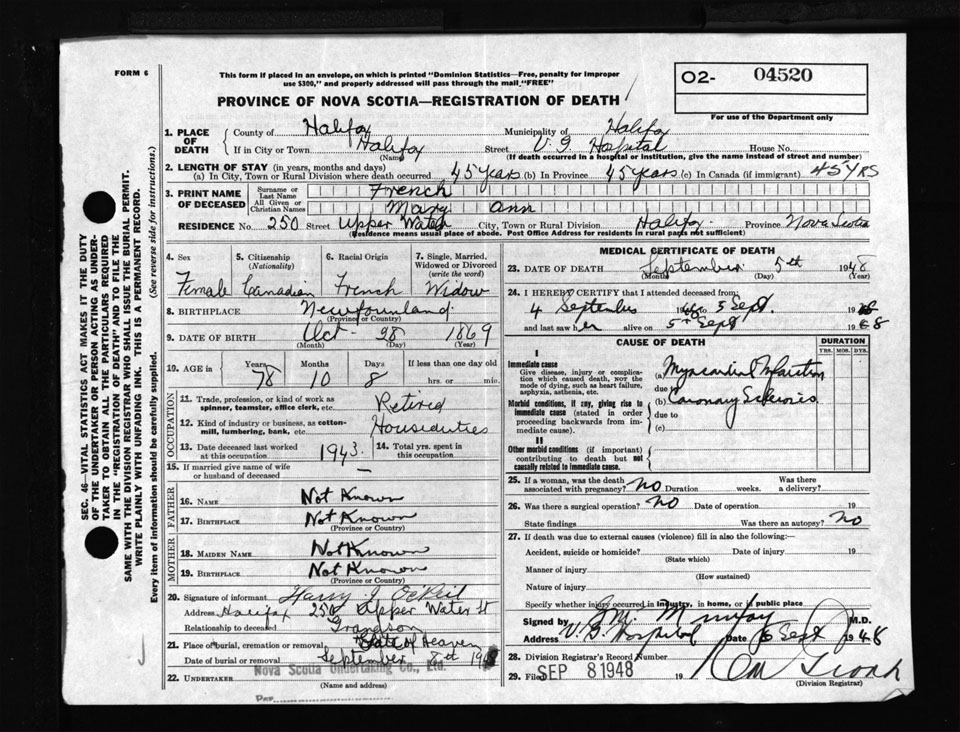 FORM 6
This form if placed in an envelope, on which is printed "Dominion Statistics—Free, penalty for improper
use $300," and properly addressed will pass through the mail "FREE"
O2- 04520
For use of the Department only
PROVINCE OF NOVA SCOTIA—REGISTRATION OF DEATH
SEC. 46—VITAL STATISTICS ACT MAKES IT THE DUTY
OF THE UNDERTAKER OR PERSON ACTING AS UNDER-
TAKER TO OBTAIN ALL THE PARTICULARS REQUIRED
IN THE "REGISTRATION OF DEATH" AND TO FILE THE
SAME WITH THE DIVISION REGISTRAR WHO SHALL ISSUE THE BURIAL PERMIT.
WRITE PLAINLY WITH UNFADING INK. THIS IS A PERMANENT RECORD.
Every item of information should be carefully supplied. (See reverse side for instructions.)
1. PLACE OF DEATH
County of Halifax Municipality of Halifax
If in City or Town Halifax Street V. G. Hospital House No.
(Name) (If death occurred in a hospital or institution, give the name instead of street and number)
2. LENGTH OF STAY (in years, months and days)
(a) In City, Town or Rural Division where death occurred 45 years (b) In Province 45 years (c) In Canada (if immigrant) 45 YRS
3. PRINT NAME OF DECEASED
Surname or Last Name French
All Given or Christian Names Mary Ann
RESIDENCE No 250 Street Upper Water City, Town or Rural Division Halifax Province Nova Scotia
(Residence means usual place of abode. Post Office Address for residents in rural parts not sufficient)
4. Sex
Female
5. Citizenship (Nationality)
Canadian
6. Racial Origin
French
7. Single, Married, Widowed or Divorced (write the word)
Widow
8. BIRTHPLACE Newfoundland
(Province or Country)
9. DATE OF BIRTH Oct 28 1869
(Month) (Day) (Year)
10. AGE in Years Months Days If less than one day old
78 10 8 hrs. or min.
OCCUPATION
11. Trade, profession or kind of work as
spinner, teamster, office clerk, etc. Retired
12. Kind of industry or business, as cotton-
mill, lumbering, bank, etc. Houseduties
13. Date deceased last worked
at this occupation 1943.
14. Total yrs. spent in
this occupation
15. If married give name of wife
or husband of deceased —
FATHER
16. NAME Not Known
17. BIRTHPLACE Not Known
(Province or Country)
MOTHER
18. MAIDEN NAME Not Known
19. BIRTHPLACE Not Known
(Province or Country)
20. Signature of informant Harry J O'Neil
Address Halifax 250 Upper Water St
Relationship to deceased Grandson
21. Place of burial, cremation or removal Gate of Heaven
Date of burial or removal September 8th 19
22. UNDERTAKER Nova Scotia Undertaking Co., Ltd.
(Name and address)
Per
MEDICAL CERTIFICATE OF DEATH
23. DATE OF DEATH September 5th 1948
(Month) (Day) (Year)
24. I HEREBY CERTIFY that I attended deceased from:
4 September 1948 to 5 Sept. 1948
and last saw her alive on 5th Sept 1948
CAUSE OF DEATH
DURATION
YRS. MOS. DYS.
I
Immediate cause
Give disease, injury or complica-
tion which caused death, not the
mode of dying, such as heart failure,
asphyxia, asthenia, etc.
(a) Myocardial Infarction
due to
Morbid conditions, if any, giving rise to
immediate cause (stated in order
proceeding backwards from im-
mediate cause).
(b) Coronary Sclerosis.
due to
(c)
II
Other morbid conditions (if important)
contributing to death but not
causally related to immediate cause.
25. If a woman, was the death
associated with pregnancy? no Duration weeks. Was there
a delivery?
26. Was there a surgical operation? no Date of operation 19
State findings Was there an autopsy? no
27. If death was due to external causes (violence) fill in also the following:—
Accident, suicide or homicide? Date of injury 19
(State which)
Manner of injury
(How sustained)
Nature of injury
Specify whether injury occurred in industry, in home, or in public place
Signed by M.D.
Address V. G. Hospital Date 6 Sept 1948
28. Division Registrar's Record Number
29. Filed SEP 8 1948 19
(Division Registrar)